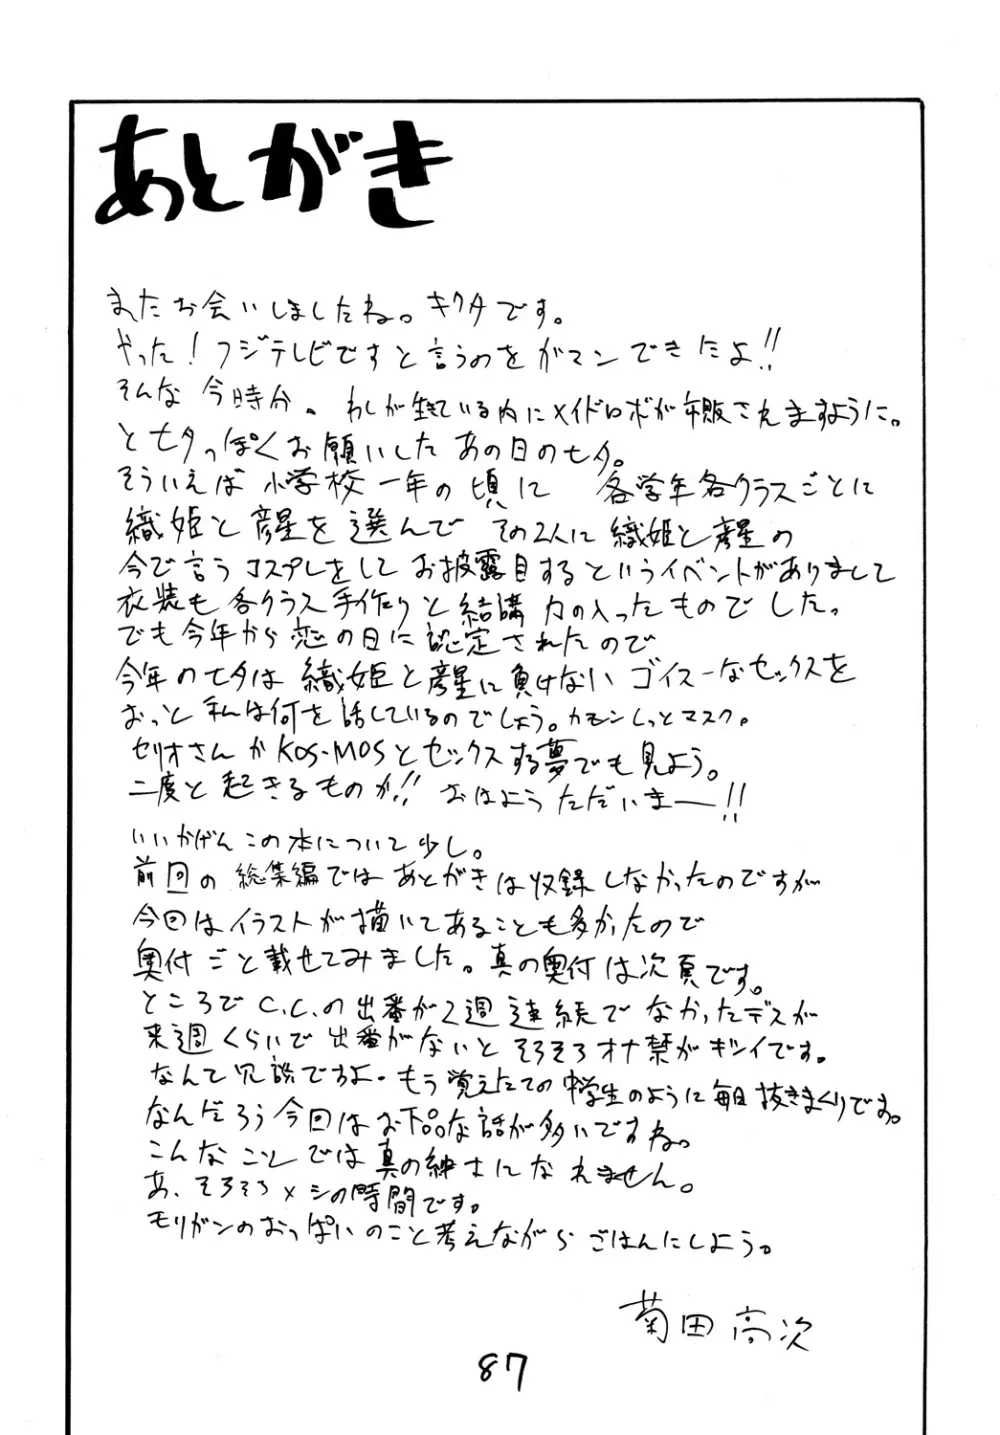 あとがき
またお会いしましたね。キクタです。
やった！フジテレビですと言うのをガマンできたよ!!
そんな今時分、わしが生きている内にメイドロボが市販されますように。
と七夕っぽくお願いしたあの日の七夕。
そういえば小学校一年の頃に 各学年各クラスごとに
織姫と彦星を選んで その2人に織姫と彦星の
今で言うコスプレをしてお披露目するというイベントがありまして
衣装も各クラス手作りと結構力の入ったものでした。
でも今年から恋の日に認定されたので
今年の七夕は織姫と彦星に負けないゴイスーなセックスを
おっと私は何を話しているのでしょう。カモンしっとマスク。
セリオさんかKOS-MOSとセックスする夢でも見よう。
二度と起きるものか!! おはようただいまー!!
いいかげんこの本について少し。
前回の総集編ではあとがきは収録しなかったのですが
今回はイラストが描いてあることも多かったので
奥付ごと載せてみました。真の奥付は次頁です。
ところでC.C.の出番が2週連続でなかったデスが
来週くらいで出番がないとそろそろオナ禁がキツイです。
なんて冗談ですよ。もう覚えたての中学生のように毎日抜きまくりです。
なんだろう今回はお下品な話が多いですね。
こんなことでは真の紳士になれません。
あ、そろそろメシの時間です。
モリガンのおっぱいのこと考えながらごはんにしよう。
菊田高次
87